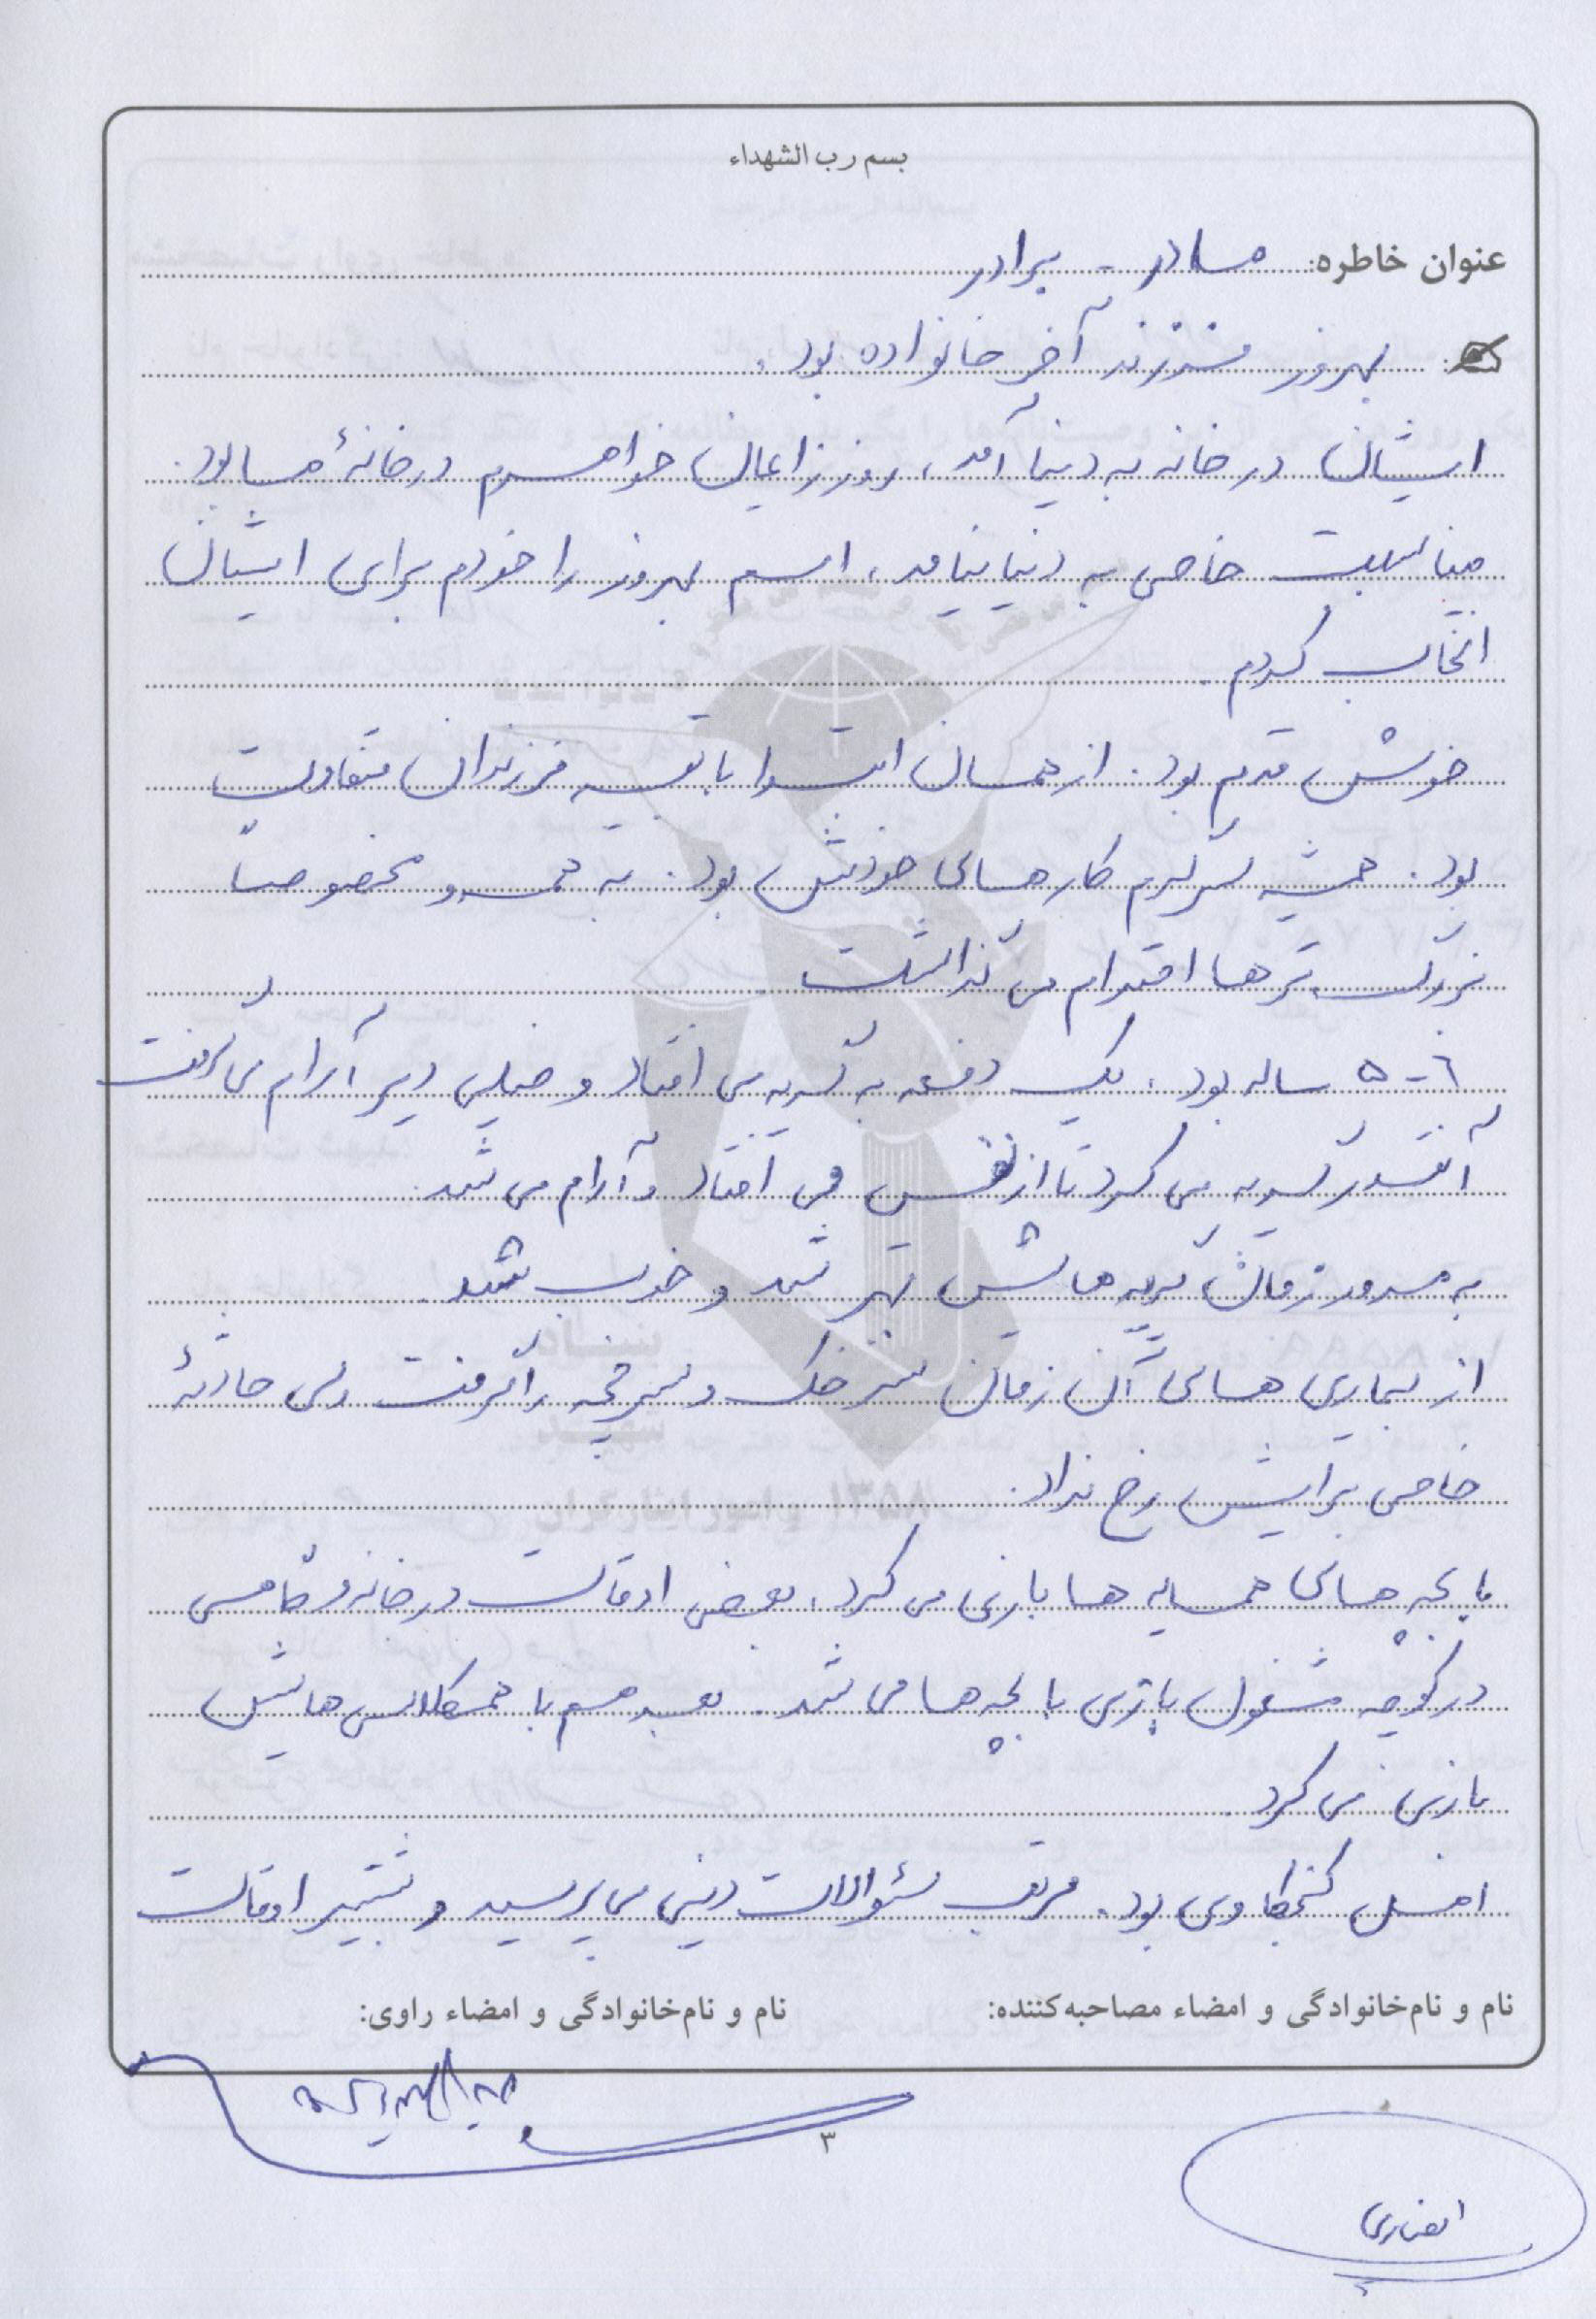 بسم رب الشهداء
عنوان خاطره: مادر - برادر
بهروز فرزند آخر خانواده بود.
ایشان در خانه به دنیا آمد، روز زایمان خواهرم در خانۀ ما بود.
مناسبت خاصی به دنیا نیامد، اسم بهروز را خودم برای ایشان
انتخاب کردم.
خوش قدم بود. از همان ابتدا با بقیه فرزندان متفاوت
بود. همیشه سرگرم کارهای خودش بود. به همه و مخصوصاً
بزرگ ترها احترام می گذاشت.
۵-۶ ساله بود، یک دفعه به گریه می افتاد و خیلی دیر آرام می گرفت
آنقدر گریه می کرد تا از نفس می افتاد و آرام می شد.
به مرور زمان گریه هایش بهتر شد و خوب شد.
از بیماری های آن زمان سرخک و سرخچه را گرفت ولی حادثۀ
خاصی برایش رخ نداد.
با بچه های همسایه ها بازی می کرد، بعضی اوقات در خانه و گاهی
در کوچه مشغول بازی با بچه ها می شد. بعد هم با همکلاسی هایش
بازی می کرد.
اهل کنجکاوی بود. مرتب سئوالات دینی می پرسید و بیشتر اوقات
نام و نام‌خانوادگی و امضاء مصاحبه‌کننده:
نام و نام‌خانوادگی و امضاء راوی:
۳
انصاری